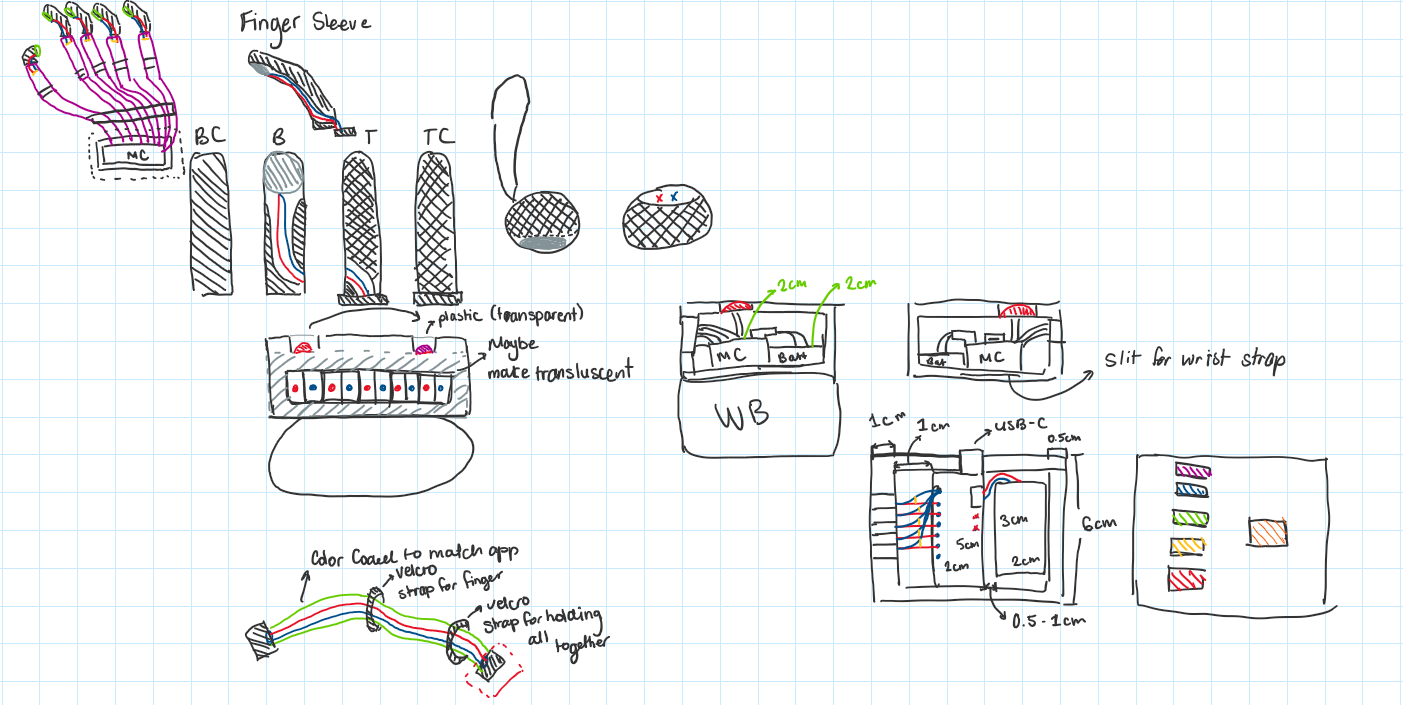 Finger Sleeve
MC
BC
B
T
TC
plastic (transparent)
Maybe
make transluscent
2cm
2cm
MC
Batt
WB
Bat
MC
Slit for wrist strap
1cm
1cm
USB-C
0.5cm
3cm
6cm
5cm
2cm
2cm
0.5-1cm
Color Coded to match app
velcro
strap for finger
velcro
strap for holding
all
together